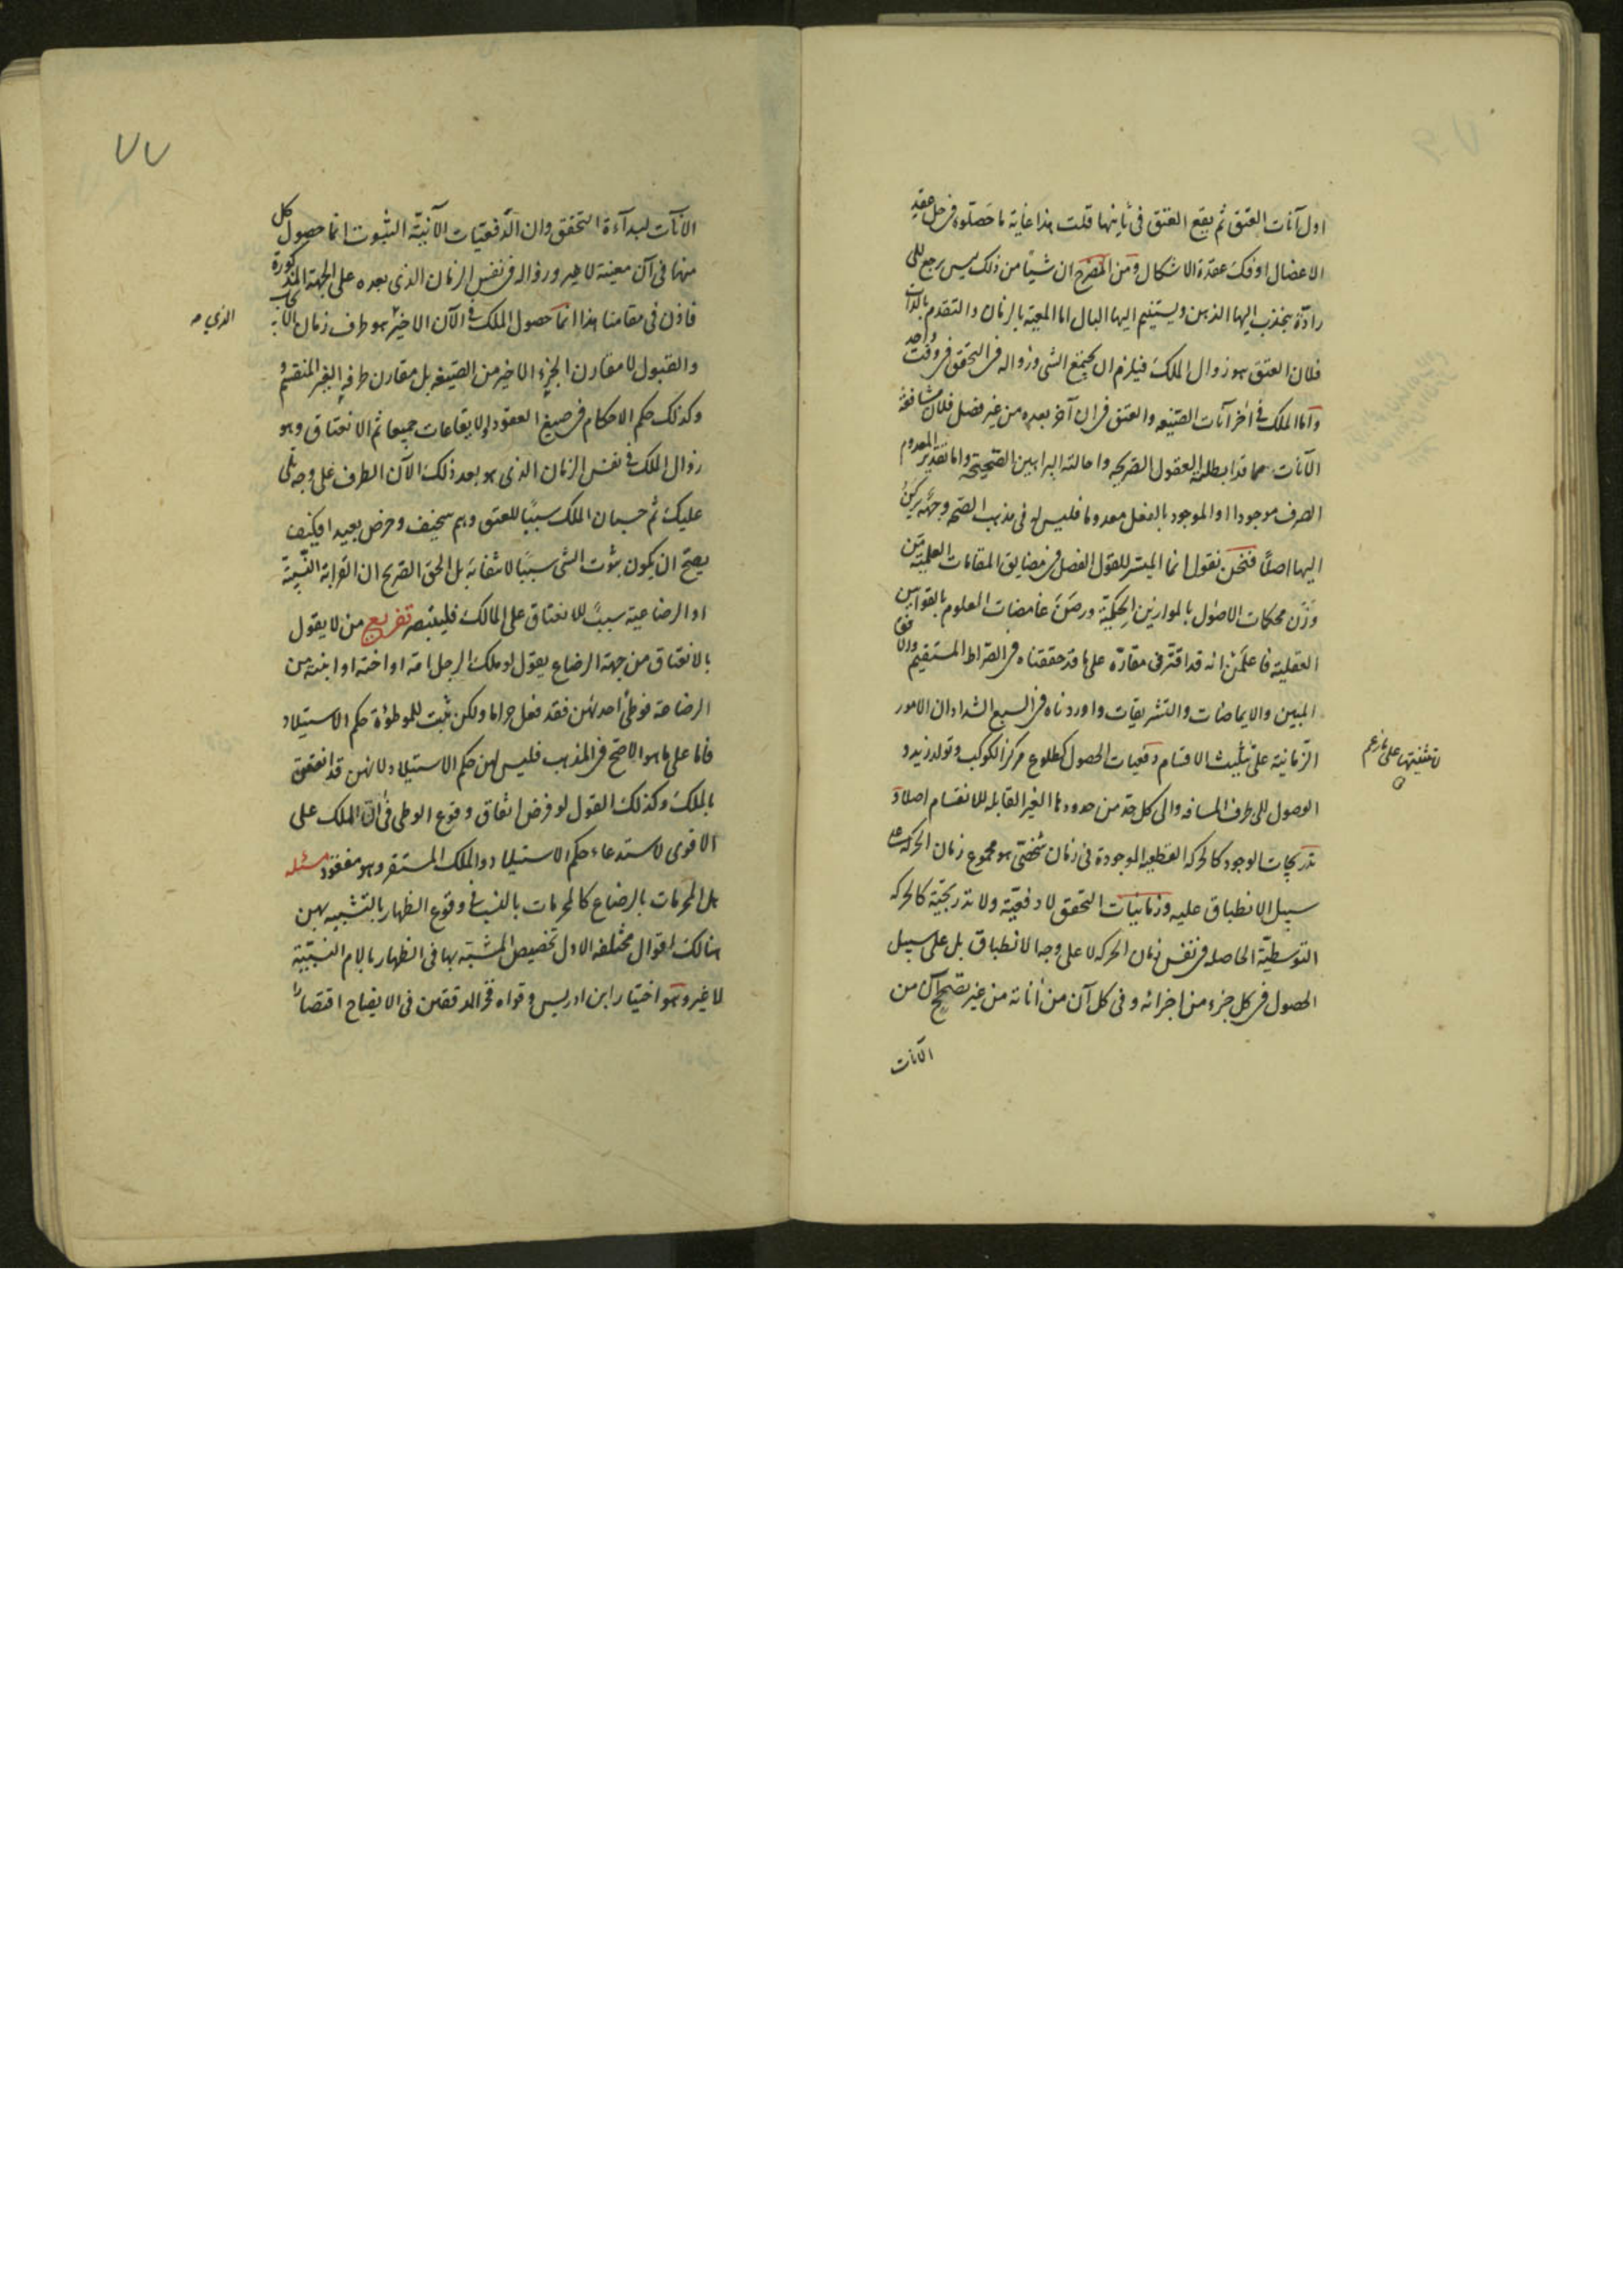 اول آنات العتق ثم يقع العتق فى ثانيها قلت هذا غاية ما حصلوه فى حل عقد
الاعضال او فك عقدة الاشكال ومن المصرح ان شيئا من ذلك ليس يرجع الى
رادّة ينجذب اليها الذهن ويستنيم اليها البال اما المعية بالزمان والتقدم بالذات
فلان العتق هو زوال الملك فيلزم ان يجتمع الشى وزواله فى التحقق فى وقت واحد
واما الملك فى اخر آنات الصيغه والعتق فى ان آخر بعده من غير فصل فلان مشافعة
الآنات مما قد ابطلته العقول الصريحه واحالته البراهين الصحيحة واما تقدير المعدوم
الصرف موجودا او الموجود بالفعل معدوما فليس له فى مذهب الصحه وجهة يركن
اليها اصلا فنحن نقول انما الميسر للقول الفصل فى مضايق المقامات العلمية من
وزن محكات الاصول بالموازين الحكمية ورصن غامضات العلوم بالقوانين
العقلية فاعلمن انه قد اقتر فى مقاره على ما قد حققناه فى الصراط المستقيم والافق
المبين والايماضات والتشريقات واوردناه فى السبع الشداد ان الامور
الزمانية على تثليث الاقسام دفعيات الحصول كطلوع مركز الكوكب وتولد زيد و
لا تثنيتها على ما زعم
الوصول الى طرف المسافه والى كل حد من حدودها الغير القابله للانقسام اصلا و
تدريجيات الوجود كالحركه القطعيه الموجودة فى زمان شخصى هو مجموع زمان الحركه على
سبيل الانطباق عليه وزمانيات التحقق لا دفعية ولا تدريجية كالحركه
التوسطية الحاصله فى نفس زمان الحركه لا على وجه الانطباق بل على سبيل
الحصول فى كل جزء من اجزائه وفى كل آن من آناته من غير تصحح آن من
الآنات
٧٧
الآنات لبداءة التحقق وان الدفعيات الآنية الثبوت انما حصول كل
منها فى آن معينة لا غير وزواله فى نفس الزمان الذى بعده على الجهة المذكورة
فاذن فى مقامنا هذا انما حصول الملك فى الآن الاخير هو طرف زمان الايجاب
الذي
والقبول لا مقارن الجزء الاخير من الصيغه بل مقارن طرفه الغير المنقسم و
وكذلك حكم الاحكام فى صيغ العقود والايقاعات جميعا ثم الانعتاق وهو
زوال الملك فى نفس الزمان الذى هو بعد ذلك الآن الطرف على وجه تلى
عليك ثم حسبان الملك سببا للعتق وهم سخيف وخرص بعيد افكيف
يصح ان يكون ثبوت الشى سببا لانتفائه بل الحق الصريح ان القرابة النسبية
او الرضاعية سبب للانعتاق على المالك فليتبصر تفريع من لا يقول
بالانعتاق من جهة الرضاع يقول لو ملك الرجل امه او اخته او ابنته من
الرضاعة فوطئ احدهن فقد فعل حراما ولكن ثبت للموطوءة حكم الاستيلاد
فاما على ما هو الاصح فى المذهب فليس لهن حكم الاستيلاد لانهن قد انعتقن
بالملك وكذلك القول لو فرض اتفاق وقوع الوطى فى آن الملك على
الاقوى لاستدعاء حكم الاستيلاد والملك المستقر وهو مفقود مسئله
هل المحرمات بالرضاع كالمحرمات بالنسب فى وقوع الظهار بالتشبيه بهن
هنالك اقوال مختلفه الاول تخصيص المشبه بها فى الظهار بالام النسبية
لا غير وهو اختيار ابن ادريس وقواه فخر المدققين فى الايضاح اقتصارا